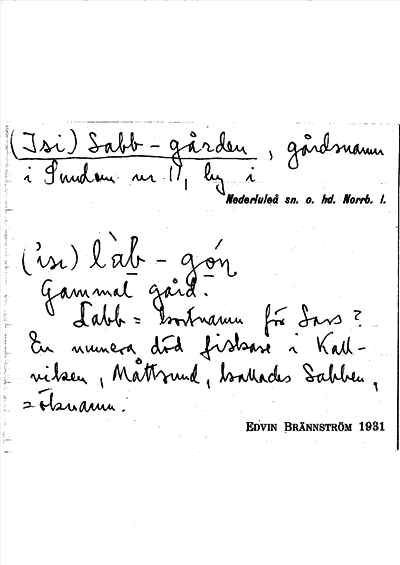 (Isi) Labb-gården, gårdsnamn
i Sundom nr 11, by i
Nederluleå sn. o. hd. Norrb. l.
('isı) làb - gón
Gammal gård.
Labb = kortnamn för Lars?
En numera död fiskare i Kall-
viken, Måttsund, kallades Labben,
= öknamn.
EDVIN BRÄNNSTRÖM 1931